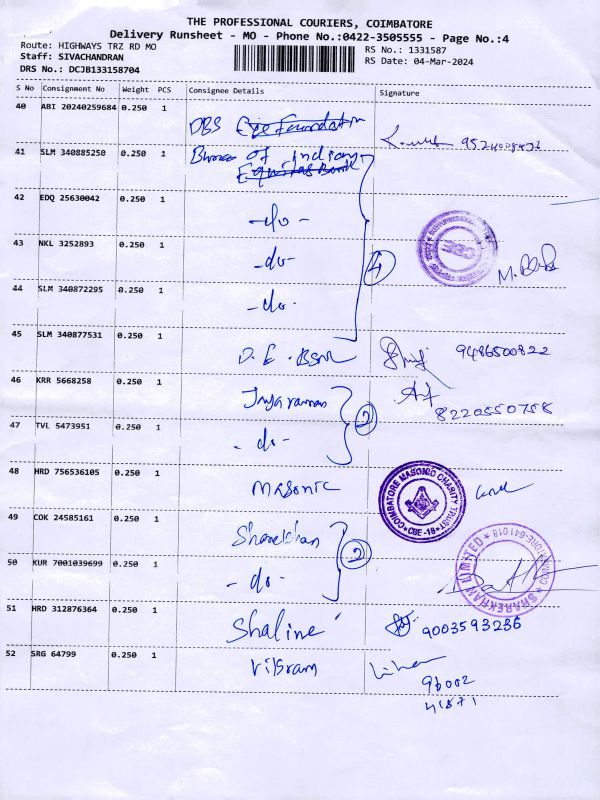 THE PROFESSIONAL COURIERS, COIMBATORE
Delivery Runsheet - MO - Phone No.:0422-3505555 - Page No.:4
Route: HIGHWAYS TRZ RD MO
RS No.: 1331587
Staff: SIVACHANDRAN
RS Date: 04-Mar-2024
DRS No.: DCJB133158704
S No Consignment No Weight PCS Consignee Details Signature
40 ABI 20240259684 0.250 1
DBS Eye Foundation
41 SLM 340885250 0.250 1 of Indian
Equitas Bank
42 EDQ 25630042 0.250 1
-do-
43 NKL 3252893 0.250 1
-do- 4
44 SLM 340872295 0.250 1
-do-
45 SLM 340877531 0.250 1
D.E. BSNL 9486500822
46 KRR 5668258 0.250 1
Jayaraman 8220550758
47 TVL 5473951 0.250 1 2
-do-
48 HRD 756536105 0.250 1
Masonic
COIMBATORE MASONIC CHARITY TRUST
CBE-18
49 COK 24585161 0.250 1
Sharekhan
SHAREKHAN LIMITED COIMBATORE-641018
50 KUR 7001039699 0.250 1 2
-do-
51 HRD 312876364 0.250 1
Shaline 9003593236
52 SRG 64799 0.250 1
Vikram
96002
41871